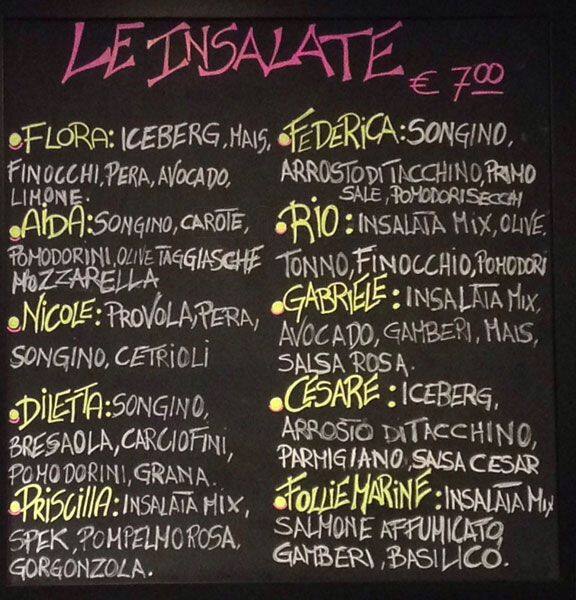 LE INSALATE
€ 7.00
FLORA: ICEBERG, MAIS,
FINOCCHI, PERA, AVOCADO,
LIMONE.
AIDA: SONGINO, CAROTE,
POMODORINI, OLIVE TAGGIASCHE
MOZZARELLA
NICOLE: PROVOLA, PERA,
SONGINO, CETRIOLI
DILETTA: SONGINO,
BRESAOLA, CARCIOFINI,
POMODORINI, GRANA.
PRISCILLA: INSALATA MIX,
SPEK, POMPELMO ROSA,
GORGONZOLA.
FEDERICA: SONGINO,
ARROSTO DI TACCHINO, PRIMO
SALE, POMODORI SECCHI
RIO: INSALATA MIX, OLIVE,
TONNO, FINOCCHIO, POMODORI
GABRIELE: INSALATA MIX,
AVOCADO, GAMBERI, MAIS,
SALSA ROSA.
CESARE: ICEBERG,
ARROSTO DI TACCHINO,
PARMIGIANO, SALSA CESAR
FOLLIE MARINE: INSALATA MIX
SALMONE AFFUMICATO,
GAMBERI, BASILICO.